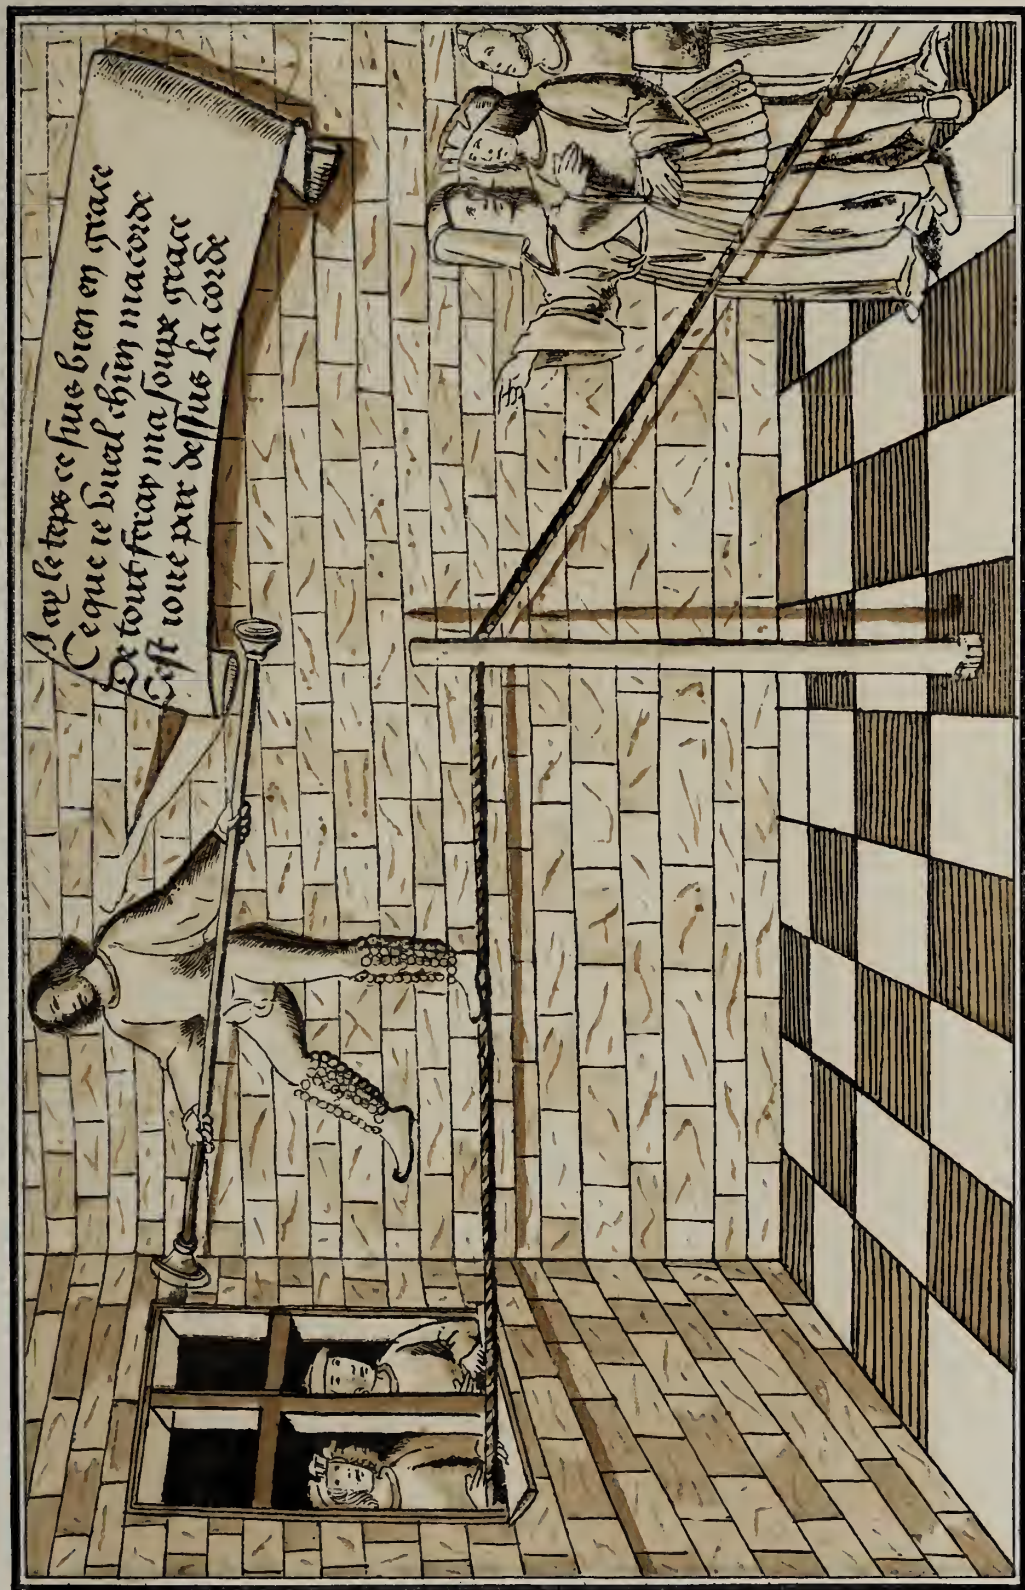 Jay le teps ce suis bien en grace
Ce que ie vueal chũn macorde
De tout feray ma soupe grace
Cest ioue par dessus la corde